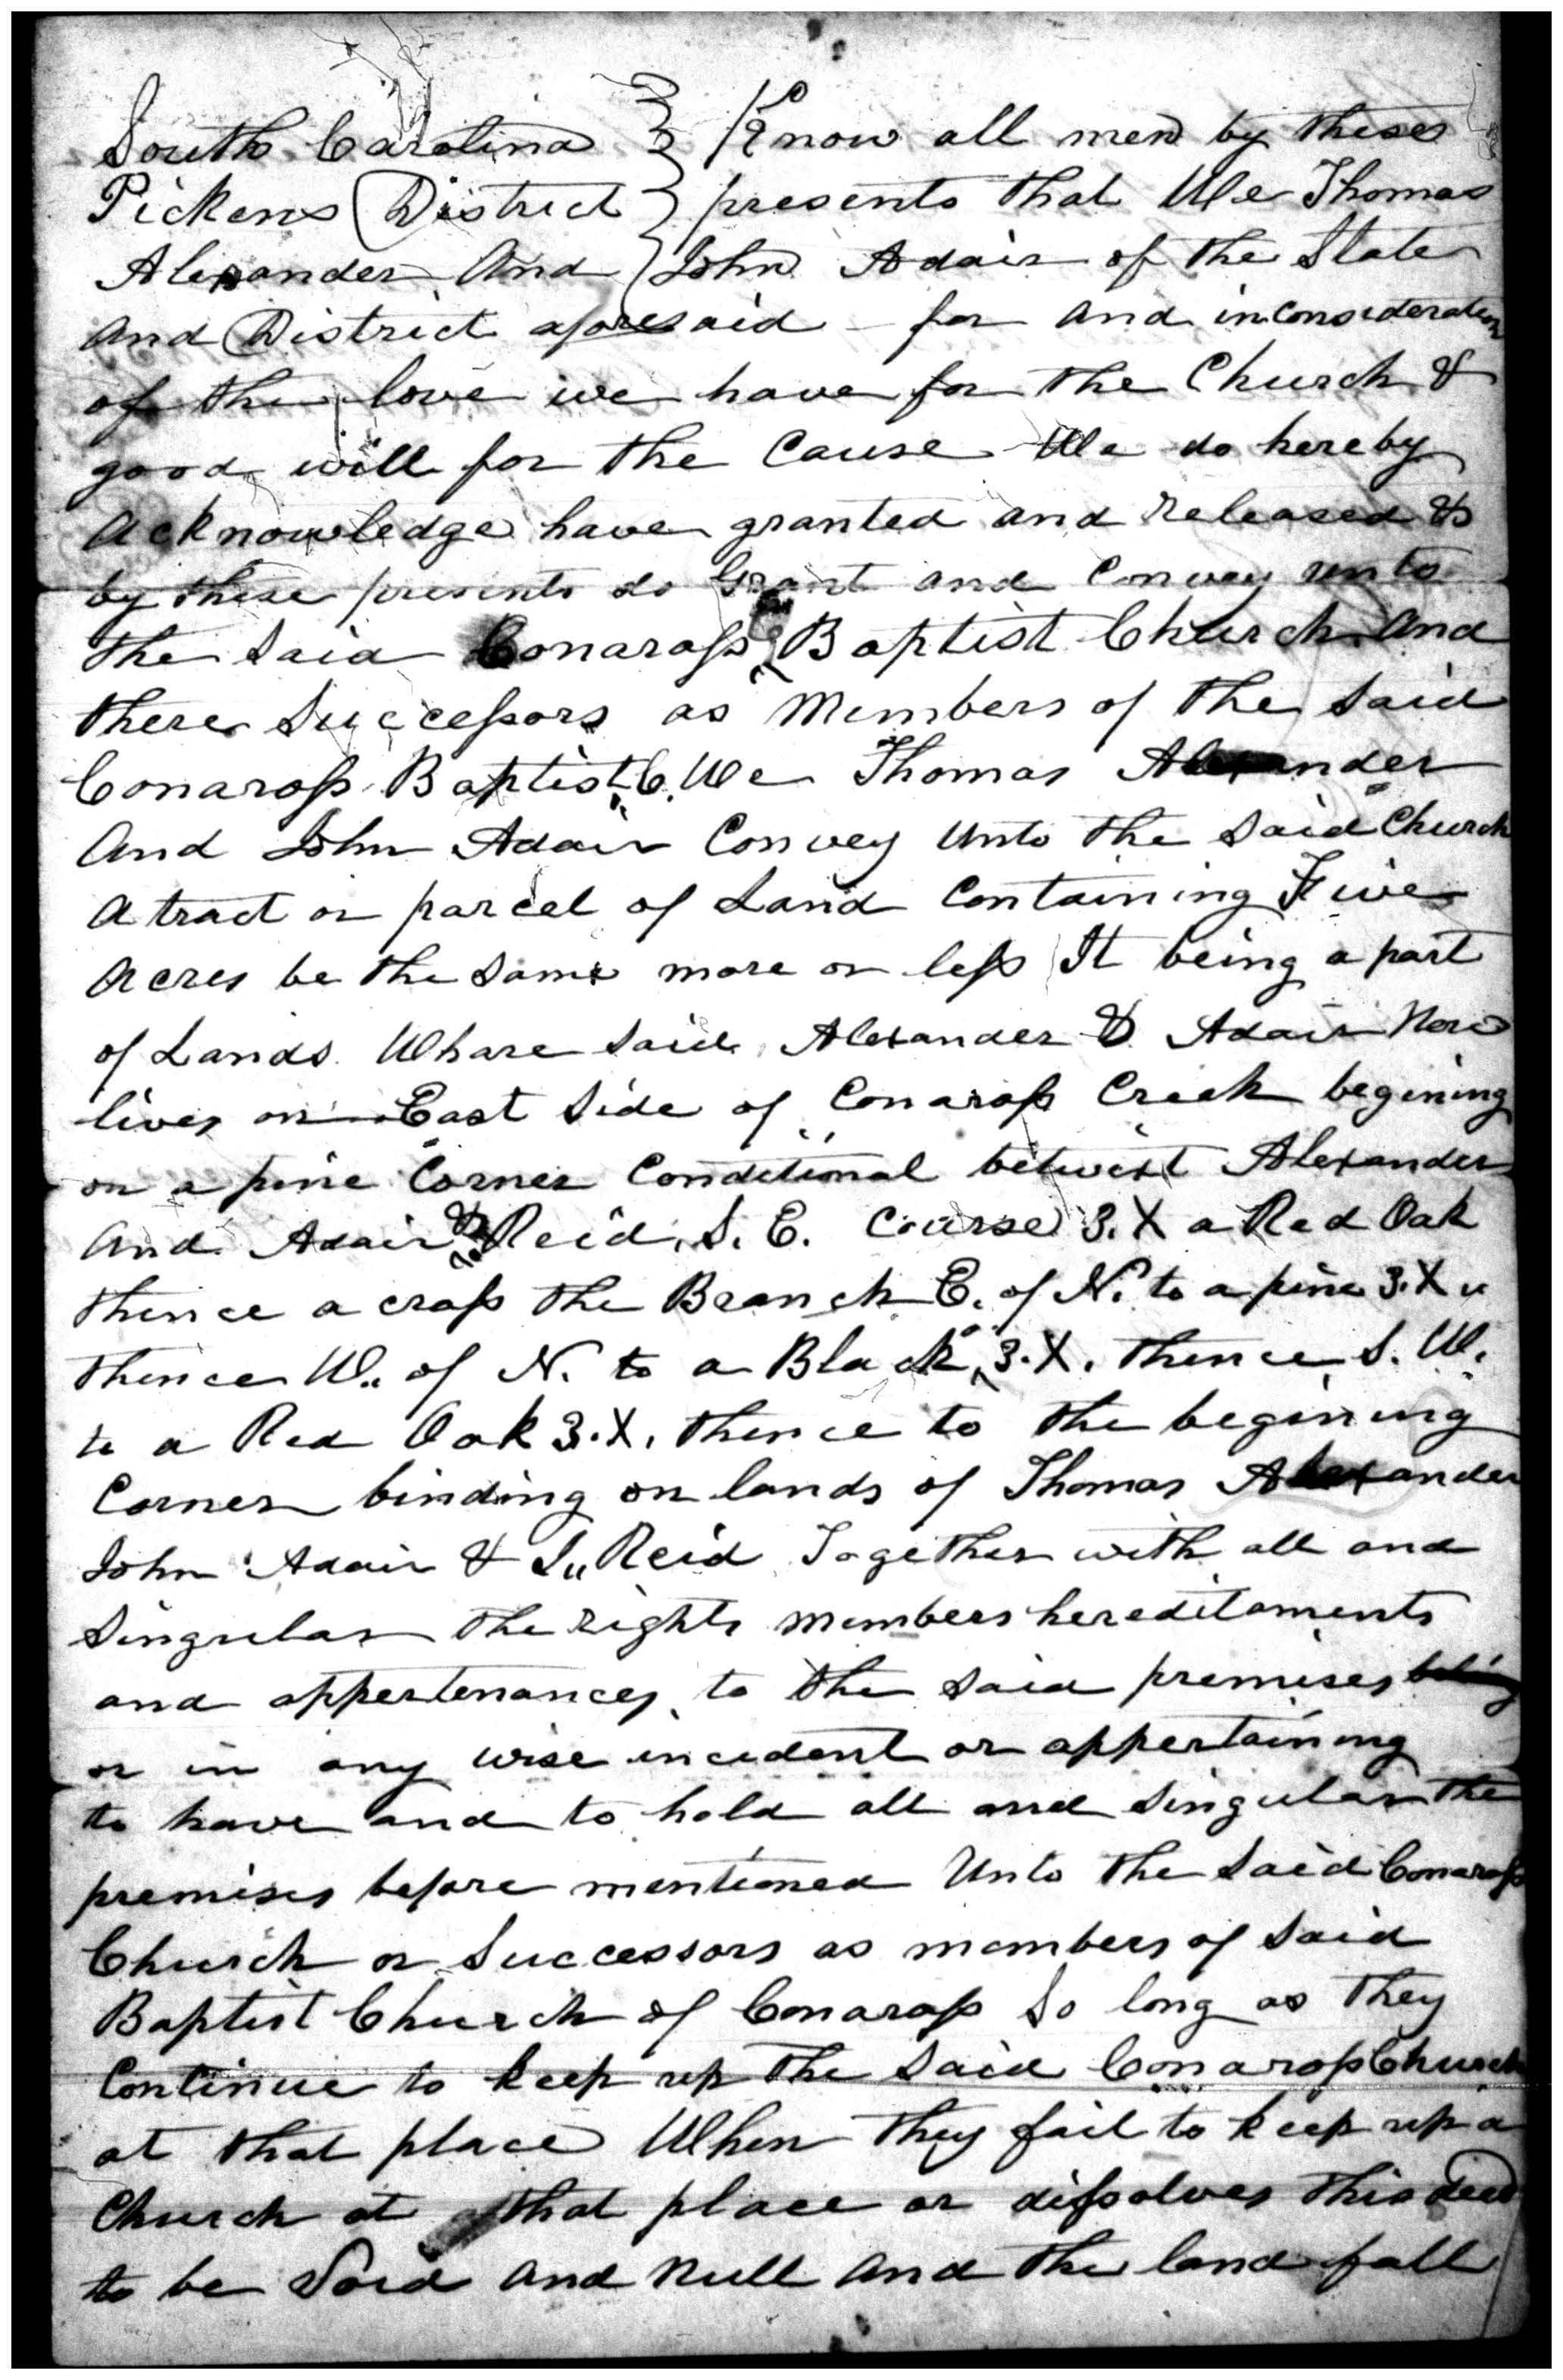 South Carolina } Know all men by these
Pickens District } presents that We Thomas
Alexander And John Adair of the State
And District aforesaid for and inconsideration
of the love we have for the Church &
good will for the Cause We do hereby
Acknowledge have granted and released &
by these presents do Grant and Convey unto
the Said Conaross Baptist Church And
there Successors as Members of the Said
Conaross Baptist C. We Thomas Alexander
And John Adair Convey Unto the Said Church
A tract or parcel of Land Containing Five
Acres be the Same more or less It being a part
of Lands Whare Said Alexander & Adair Now
lives on East Side of Conaross Creek begining
on a pine Corner Conditional betwixt Alexander
And Adair & Reid, S. E. Course 3.X a Red Oak
thence a cross the Branch E. of N. to a pine 3.X
thence W. of N. to a Black 3.X. thence S. W.
to a Red Oak 3.X. thence to the begining
Corner binding on lands of Thomas Alexander
John Adair & Reid Together with all and
Singular the rights members hereditaments
and appertenances to the Said premises
or in any wise incident or appertaining
to have and to hold all and Singular the
premises before mentioned Unto the Said Conaross
Church or Successors as members of Said
Baptist Church of Conaross So long as they
Continue to keep up the Said Conaross Church
at that place When they fail to keep up a
Church at that place or dissolves this deed
to be Void and Null and the land fall